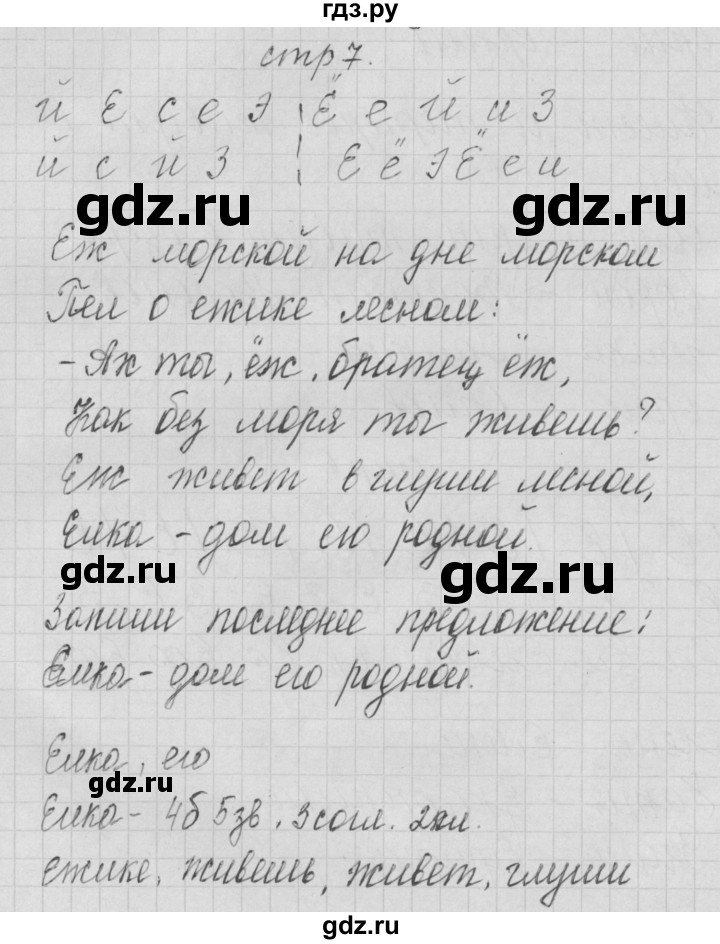 гдз.ру
стр 7.
й Е с е Э ¦ Ё е й и З
й с й З ¦ Е ё Э Ё е и
gdz.ru gdz.ru
Еж морской на дне морском
Пел о ежике лесном:
- Ах ты, ёж, братец ёж,
Как без моря ты живешь?
Еж живет в глуши лесной,
Елка - дом его родной.
gdz.ru gdz.ru
Запиши последнее предложение:
Елка - дом его родной.
Елка, его
gdz.ru
Елка - 4б 5зв, 3 согл. 2гл.
ежике, живешь, живет, глуши
gdz.ru